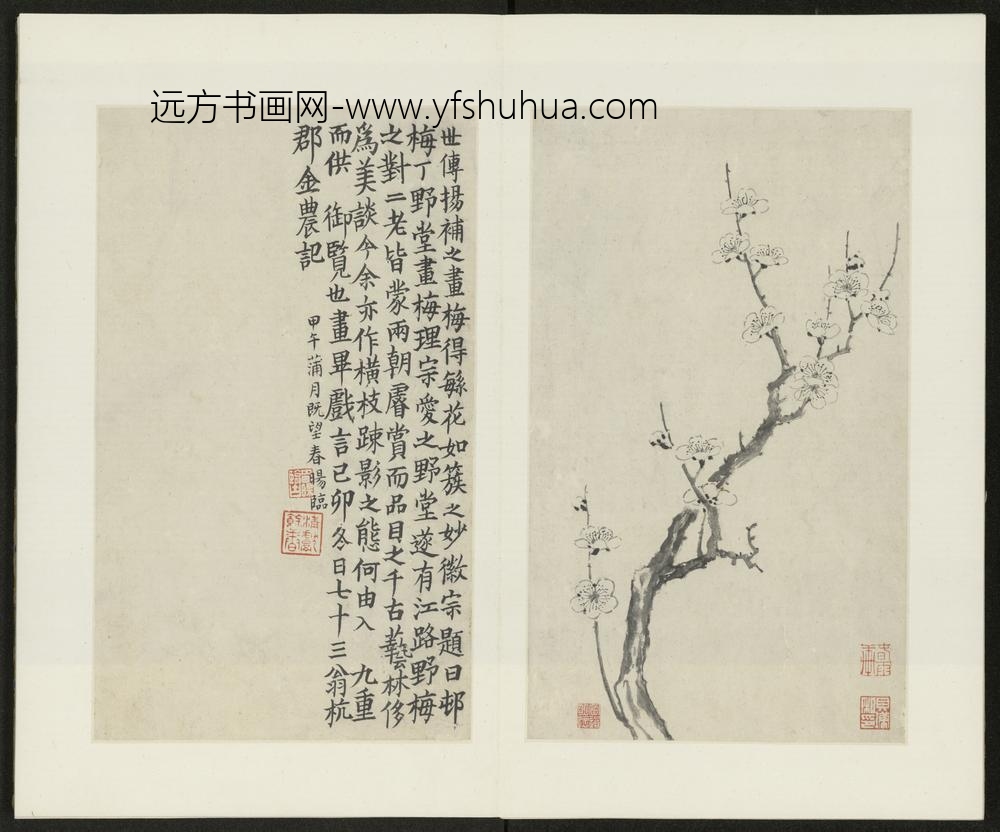 远方书画网-www.yfshuhua.com
世傳揚補之畫梅得繇花如簇之妙徽宗題曰邨
梅丁野堂畫梅理宗愛之野堂遂有江路野梅
之對二老皆蒙兩朝睿賞而品目之千古藝林侈
爲美談今余亦作橫枝疎影之態何由入 九重
而供 御覽也畫畢戲言己卯冬日七十三翁杭
郡金農記
甲午蒲月既望春暘臨